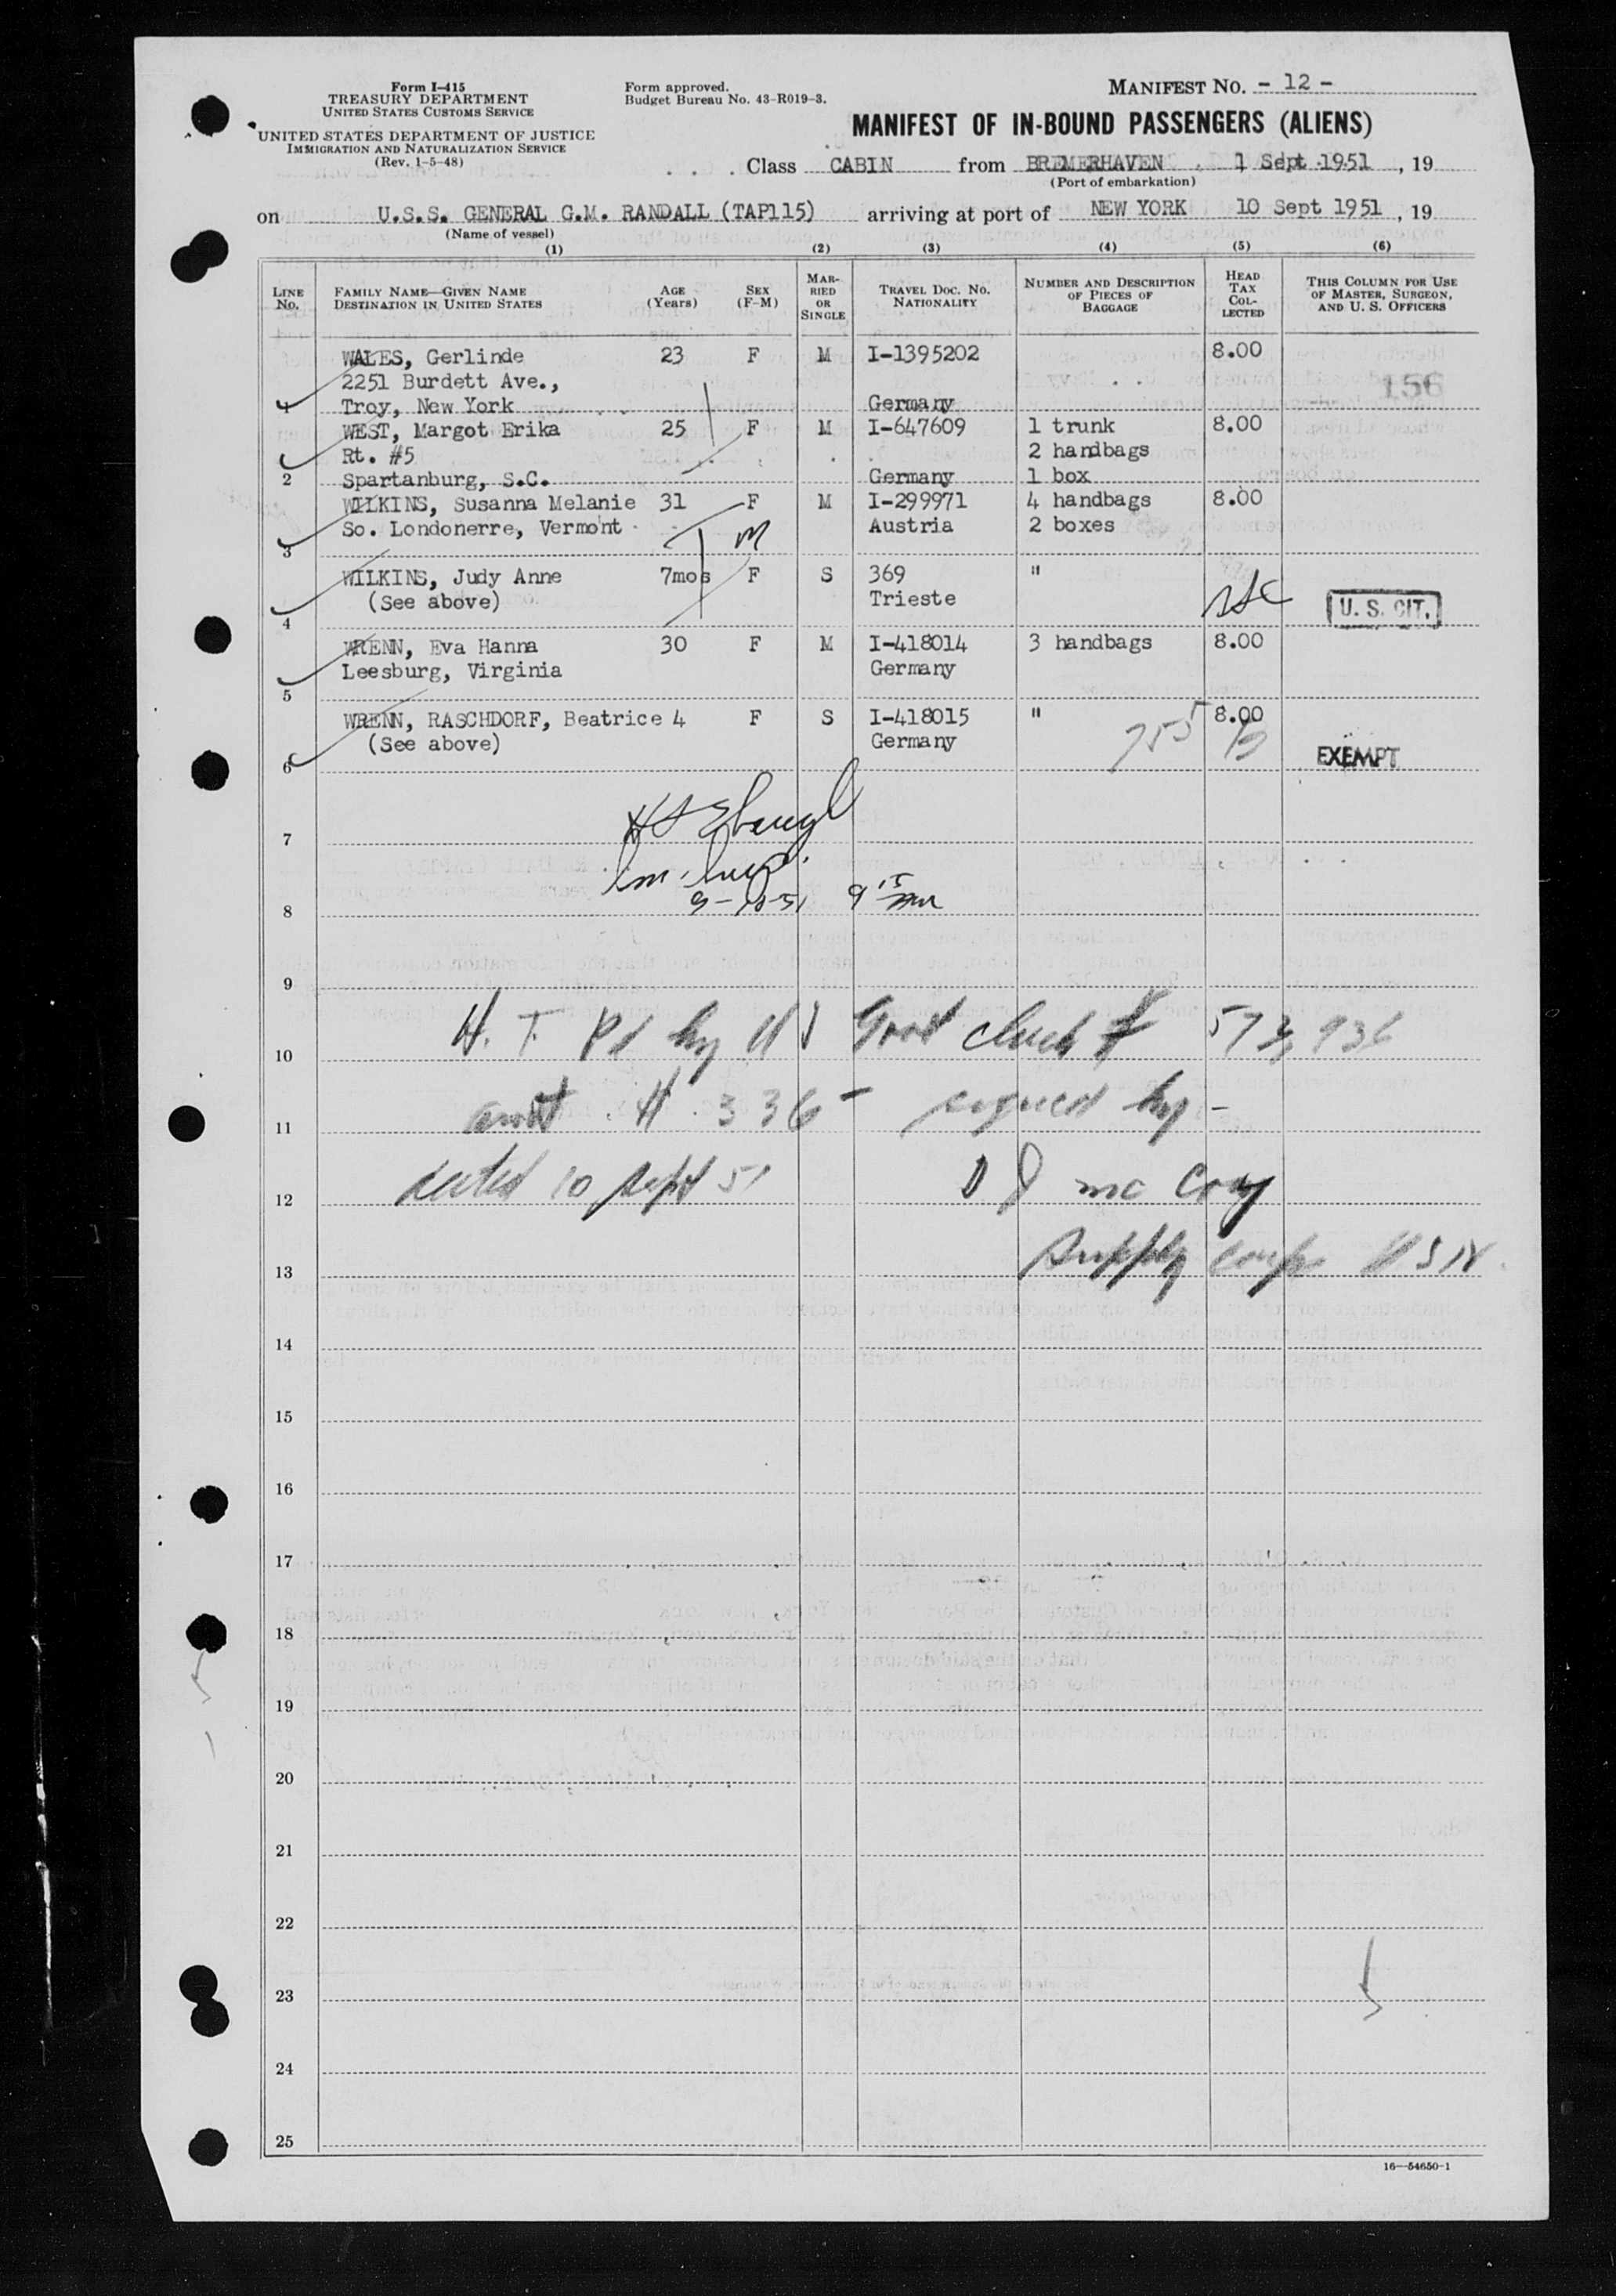 Form I-415
TREASURY DEPARTMENT
UNITED STATES CUSTOMS SERVICE
UNITED STATES DEPARTMENT OF JUSTICE
IMMIGRATION AND NATURALIZATION SERVICE
(Rev. 1-5-48)
Form approved.
Budget Bureau No. 43-R019-3.
MANIFEST NO. - 12 -
MANIFEST OF IN-BOUND PASSENGERS (ALIENS)
Class CABIN from BREMERHAVEN 1 Sept 1951, 19
(Port of embarkation)
on U.S.S. GENERAL G.M. RANDALL (TAP115) arriving at port of NEW YORK 10 Sept 1951, 19
(Name of vessel)
(1) (2) (3) (4) (5) (6)
LINE No. FAMILY NAME—GIVEN NAME DESTINATION IN UNITED STATES AGE (Years) SEX (F-M) MARRIED OR SINGLE TRAVEL DOC. NO. NATIONALITY NUMBER AND DESCRIPTION OF PIECES OF BAGGAGE HEAD TAX COLLECTED THIS COLUMN FOR USE OF MASTER, SURGEON, AND U. S. OFFICERS
WALES, Gerlinde 23 F M I-1395202 8.00
2251 Burdett Ave.,
156
1 Troy, New York Germany
WEST, Margot Erika 25 F M I-647609 1 trunk 8.00
Rt. #5 2 handbags
2 Spartanburg, S.C. Germany 1 box
WILKINS, Susanna Melanie 31 F M I-299971 4 handbags 8.00
So. Londonerre, Vermont M Austria 2 boxes
3
WILKINS, Judy Anne 7mos F S 369 "
(See above) Trieste U. S. CIT.
4
WRENN, Eva Hanna 30 F M I-418014 3 handbags 8.00
Leesburg, Virginia Germany
5
WRENN, RASCHDORF, Beatrice 4 F S I-418015 " 8.00
(See above) Germany
6 EXEMPT
7
8 9-10-51 9 15
9
10 H. T. Pd by U S Govt check # 573,936
11 amt. # 336- signed by -
12 dated 10 Sept 51 D J McCoy
13 Supply Corps USN.
14
15
16
17
18
19
20
21
22
23
24
25
16—54650-1